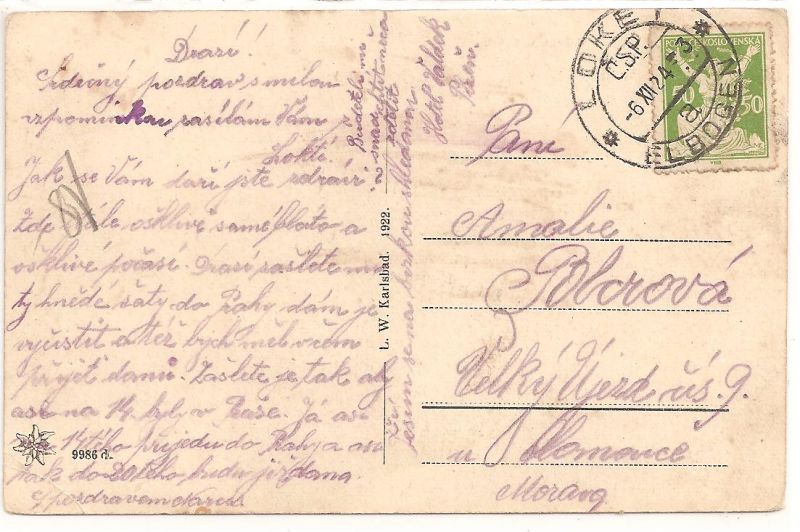 Drazí!
Srdečný pozdrav s milou
vzpomínkou zasílám Vám
z Lokte.
Jak se Vám daří jste zdrávi?
Zde stále ošklivě samé bláto a
ošklivé počasí. Drazí zašlete mi
ty hnědé šaty do Prahy dám je
vyčistit a též bych měl v čem
přijet domů. Zašlete je tak aby
asi na 14. byly v Praze. Já asi
14tého přijedu do Prahy a asi
pak do 20tého budu jiz doma.
S pozdravem
Budete mi
z
sdělit
Hotel Valdek
Plzeň.
jsem se na
L. W. Karlsbad. 1922.
9986 d.
LOKET
Č.S.P.
-6.XII.24-3
* a *
ELBOGEN
POŠTA ČESKOSLOVENSKÁ
50 50
Paní
Amalie
Velký Újezd čís. 9.
u Olomouce
Morava